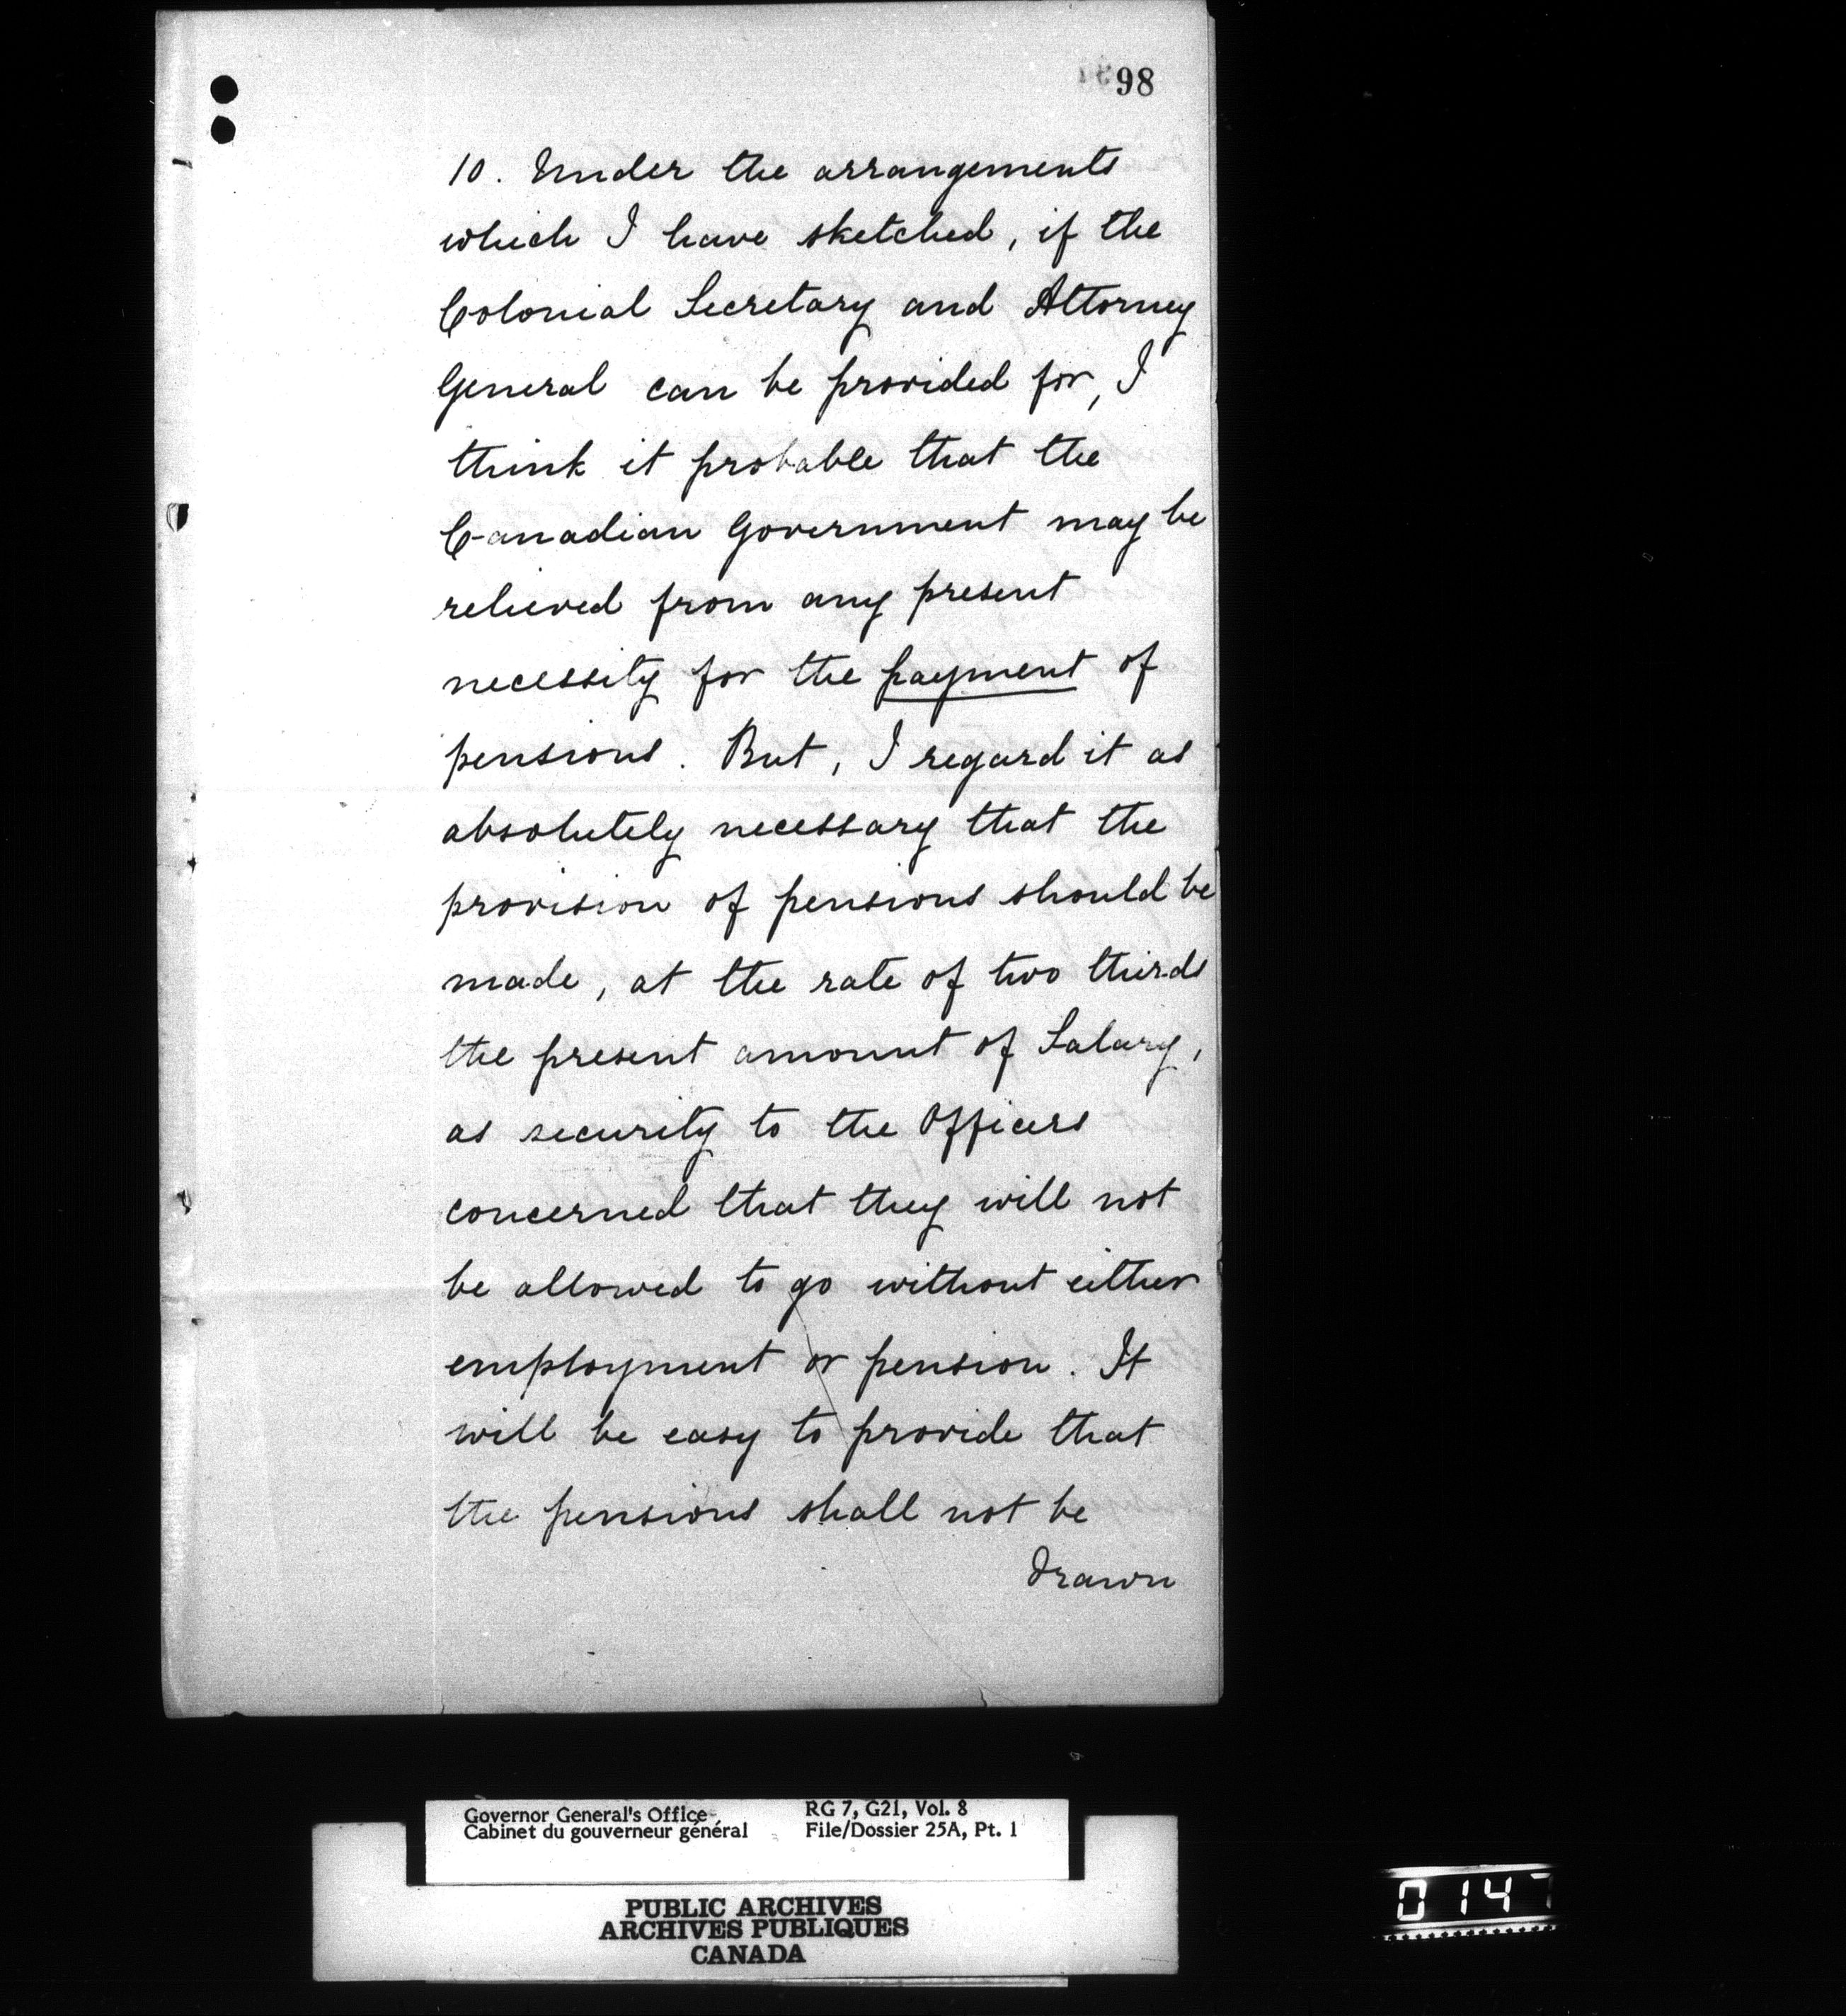 98
10. Under the arrangements
which I have sketched, if the
Colonial Secretary and Attorney
General can be provided for, I
think it probable that the
Canadian Government may be
relieved from any present
necessity for the payment of
pensions. But, I regard it as
absolutely necessary that the
provision of pensions should be
made, at the rate of two thirds
the present amount of Salary,
as security to the Officers
concerned that they will not
be allowed to go without either
employment or pension. It
will be easy to provide that
the pensions shall not be
drawn
Governor General's Office
Cabinet du gouverneur général
RG 7, G21, Vol. 8
File/Dossier 25A, Pt. 1
PUBLIC ARCHIVES
ARCHIVES PUBLIQUES
CANADA
0147